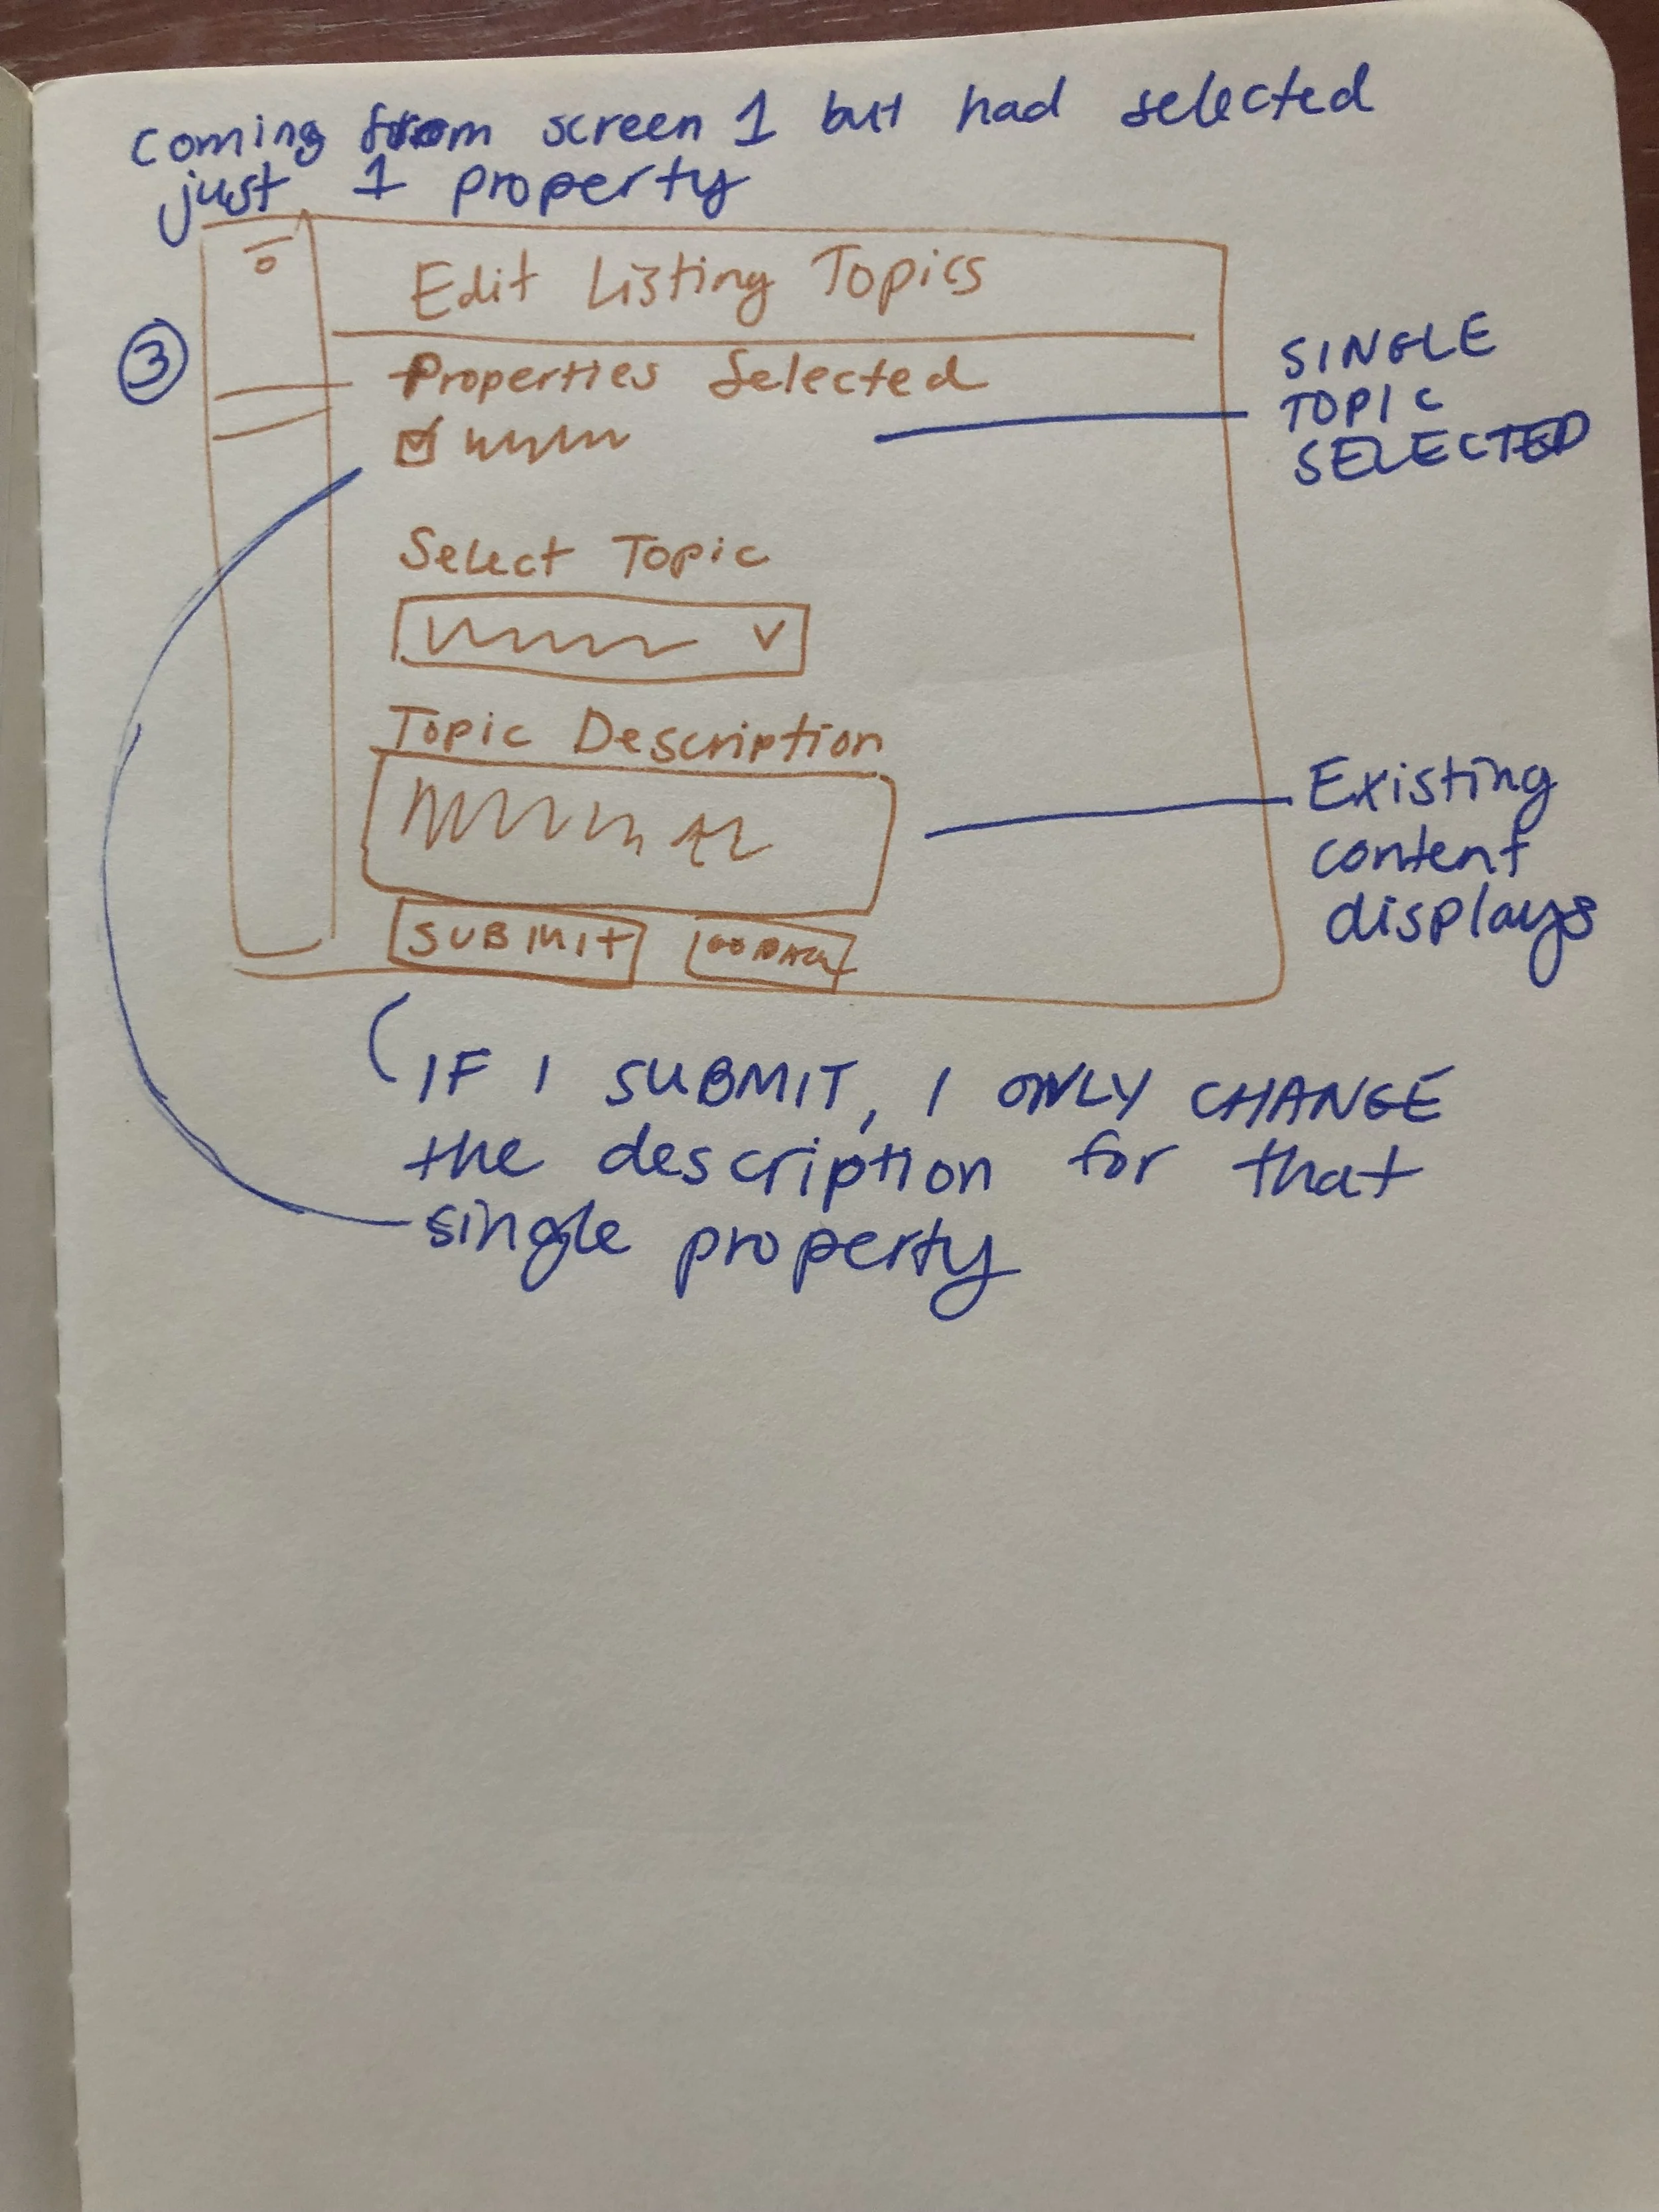 coming from screen 1 but had selected
just 1 property
3
Edit Listing Topics
Properties Selected
SINGLE
TOPIC
SELECTED
Select Topic
Topic Description
Existing
content
displays
SUBMIT
IF I SUBMIT, I ONLY CHANGE
the description for that
single property